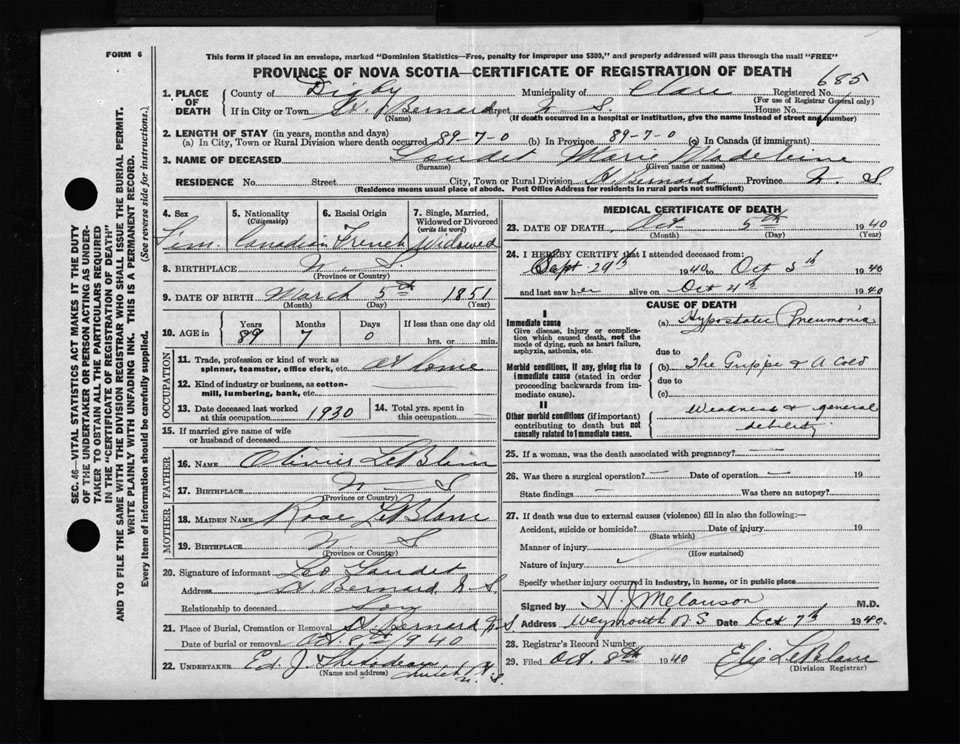 FORM 6
This form if placed in an envelope, marked "Dominion Statistics—Free, penalty for improper use $300," and properly addressed will pass through the mail "FREE"
PROVINCE OF NOVA SCOTIA—CERTIFICATE OF REGISTRATION OF DEATH
685
1. PLACE OF DEATH County of Digby Municipality of Clare Registered No.
(For use of Registrar General only)
If in City or Town St. Bernard Street N. S. House No.
(Name) (If death occurred in a hospital or institution, give the name instead of street and number)
2. LENGTH OF STAY (in years, months and days)
(a) In City, Town or Rural Division where death occurred 89-7-0 (b) In Province 89-7-0 (c) In Canada (if immigrant)
3. NAME OF DECEASED Gaudet Marie Madeleine
(Surname) (Given name or names)
RESIDENCE No. Street City, Town or Rural Division St. Bernard Province N. S.
(Residence means usual place of abode. Post Office Address for residents in rural parts not sufficient)
SEC. 46—VITAL STATISTICS ACT MAKES IT THE DUTY
OF THE UNDERTAKER OR PERSON ACTING AS UNDER-
TAKER TO OBTAIN ALL THE PARTICULARS REQUIRED
IN THE "CERTIFICATE OF REGISTRATION OF DEATH"
AND TO FILE THE SAME WITH THE DIVISION REGISTRAR WHO SHALL ISSUE THE BURIAL PERMIT.
WRITE PLAINLY WITH UNFADING INK. THIS IS A PERMANENT RECORD.
Every item of information should be carefully supplied. (See reverse side for instructions.)
4. Sex Fem.
5. Nationality (Citizenship) Canadian
6. Racial Origin French
7. Single, Married, Widowed or Divorced (write the word) Widowed
8. BIRTHPLACE N. S.
(Province or Country)
9. DATE OF BIRTH March 5th 1851
(Month) (Day) (Year)
10. AGE in Years Months Days If less than one day
89 7 0 hrs. or min.
OCCUPATION
11. Trade, profession or kind of work as spinner, teamster, office clerk, etc. at home
12. Kind of industry or business, as cotton-mill, lumbering, bank, etc.
13. Date deceased last worked at this occupation 1930
14. Total yrs. spent in this occupation
15. If married give name of wife or husband of deceased
FATHER
16. NAME LeBlanc
17. BIRTHPLACE N. S.
(Province or Country)
MOTHER
18. MAIDEN NAME Rose LeBlanc
19. BIRTHPLACE N. S.
(Province or Country)
20. Signature of informant Leo Gaudet
Address St. Bernard N. S.
Relationship to deceased son
21. Place of Burial, Cremation or Removal St. Bernard N.S.
Date of burial or removal Oct. 8th 1940
22. UNDERTAKER Ed. J.
(Name and address) N. S.
MEDICAL CERTIFICATE OF DEATH
23. DATE OF DEATH Oct 5th 1940
(Month) (Day) (Year)
24. I HEREBY CERTIFY that I attended deceased from:
Sept. 29th 1940 to Oct 5th 1940
and last saw her alive on Oct 4th 1940
CAUSE OF DEATH
I
Immediate cause
Give disease, injury or complication which caused death, not the mode of dying, such as heart failure, asphyxia, asthenia, etc.
(a) Hypostatic Pneumonia
due to
Morbid conditions, if any, giving rise to immediate cause (stated in order proceeding backwards from immediate cause).
(b) The Grippe & A Cold
due to
(c)
II
Other morbid conditions (if important) contributing to death but not causally related to immediate cause.
Weakness & general
debility
25. If a woman, was the death associated with pregnancy?
26. Was there a surgical operation? Date of operation 19
State findings Was there an autopsy?
27. If death was due to external causes (violence) fill in also the following:—
Accident, suicide or homicide? Date of injury 19
(State which)
Manner of injury
(How sustained)
Nature of injury
Specify whether injury occurred in industry, in home, or in public place
Signed by H. J. Melanson M.D.
Address Weymouth N.S. Date Oct 7th 1940.
28. Registrar's Record Number
29. Filed Oct. 8th 1940 LeBlanc
(Division Registrar)